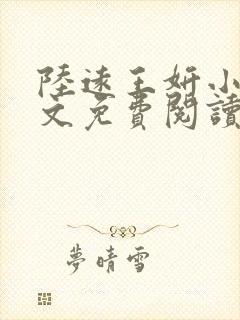 陸遠王妍小
文免費閱讀
夢晴雪